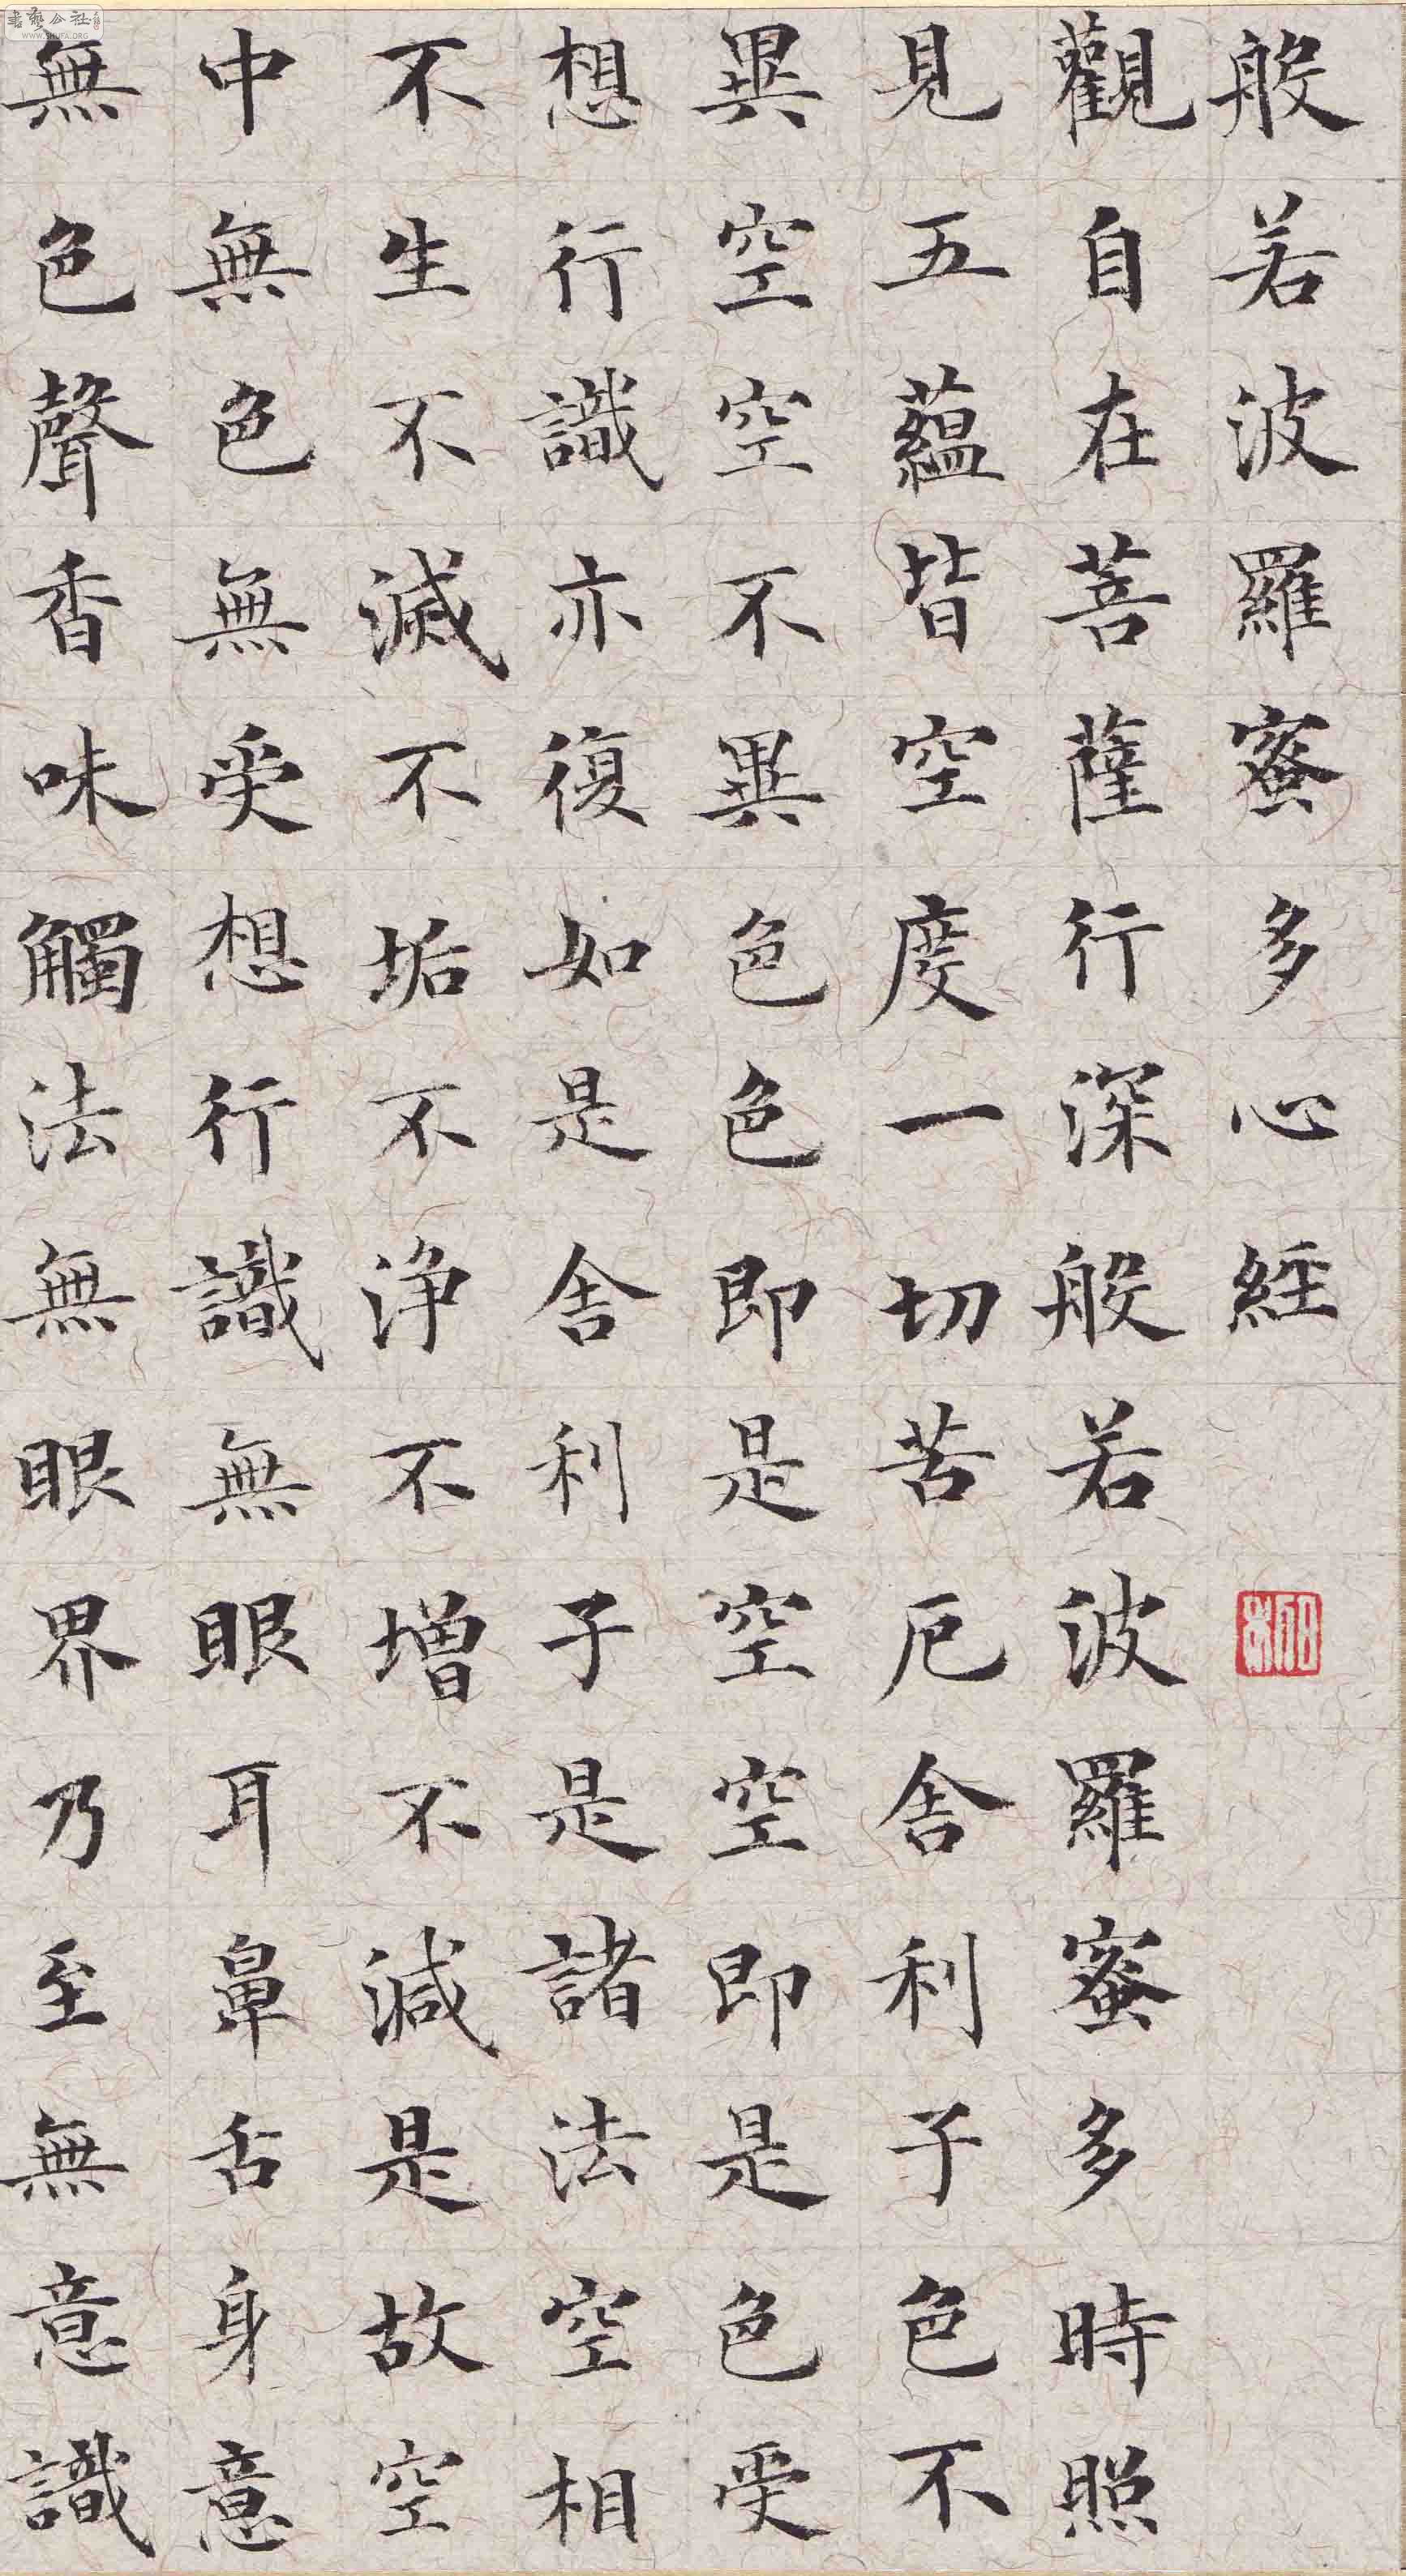 般若波羅蜜多心經
觀自在菩薩行深般若波羅蜜多時照
見五蘊皆空度一切苦厄舍利子色不
異空空不異色色即是空空即是色受
想行識亦復如是舍利子是諸法空相
不生不滅不垢不淨不增不減是故空
中無色無受想行識無眼耳鼻舌身意
無色聲香味觸法無眼界乃至無意識
WWW.SHUFA.ORG